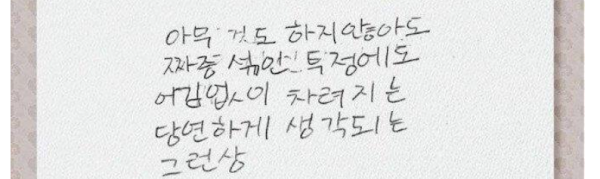 아무 것도 하지 않아도
짜증 섞인 투정에도
어김없이 차려지는
당연하게 생각되는
그런상